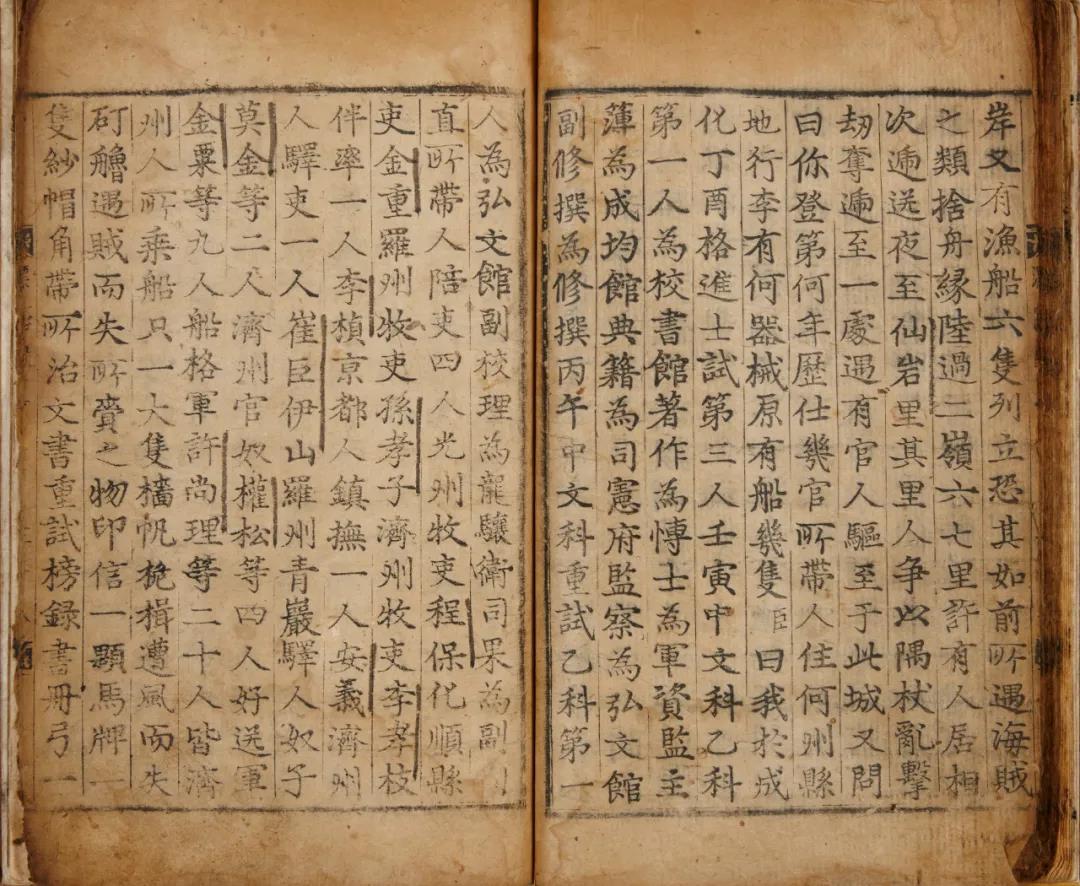 岸又有漁船六隻列立恐其如前所遇海賊
之類捨舟緣陸過二嶺六七里許有人居相
次遞送夜至仙岩里其里人爭以隅杖亂擊
劫奪遞至一處遇有官人驅至于此城又問
曰你登第何年歷仕幾官所帶人住何州縣
地行李有何器械原有船幾隻臣曰我於成
化丁酉格進士試第三人壬寅中文科乙科
第一人為校書館著作為博士為軍資監主
薄為成均館典籍為司憲府監察為弘文館
副修撰為修撰丙午中文科重試乙科第一
人為弘文館副校理為龍驤衛司果為副
直所帶人陪吏四人光州牧吏程保化順縣
吏金重羅州牧吏孫孝子濟州牧吏李孝枝
伴率一人李楨京都人鎮撫一人安義濟州
人驛吏一人崔巨伊山羅州青巖驛人奴子
莫金等二人濟州官奴權松等四人好送軍
金粟等九人船格軍許尚理等二十人皆濟
州人所乘船只一大隻檣帆桅楫遭風而失
矴艣遇賊而失所賫之物印信一顆馬牌一
隻紗帽角帶所治文書重試榜錄書冊弓一